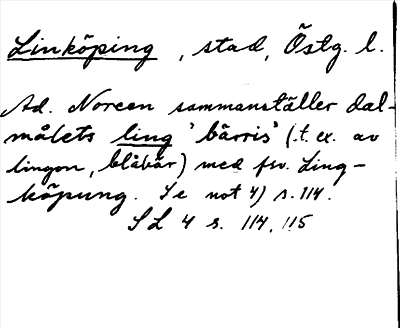 Linköping, stad, Östg. l.
Ad. Noreen sammanställer dal-
målets ling 'bärris' (t. ex. av
lingon, blåbär) med fsv. Ling-
köpung. Se not 4) s. 114.
SL 4 s. 114, 115